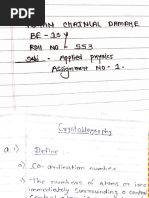 CHAINLAL DAMAHE
BE - 1st Y
Roll No - 553
Sub :- Applied physics
Assignment No - 1.
Crystallography
Q.1) Define :-
1) Co-ordination number
→ The numbers of atoms or ions
immediately surrounding a central